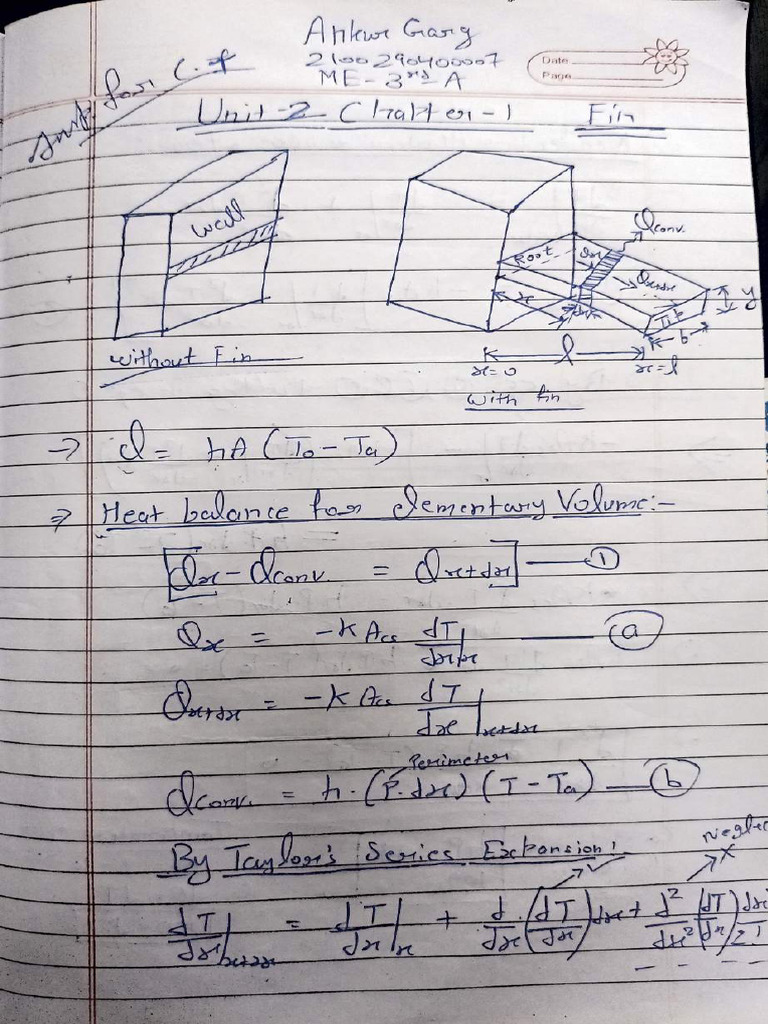 Ankur Garg
2100290400007
ME-3rd-A
Date
Page
Unit-2 Chapter-1 Fin
wall
Root
Qx
Qconv.
Qx+dx
x
dx
Tip
b
y
l
x=0
x=l
without Fin
with fin
→ Q = hA (To - Ta)
⇒ Heat balance for elementary Volume:-
[Qx - Qconv. = Qx+dx] — ①
Qx = -k Acs dT/dx|x — (a)
Qx+dx = -k Acs dT/dx|x+dx
Perimeter
Qconv. = h.(P.dx) (T - Ta) — (b)
By Taylor's Series Expansion:
✓ ×
dT/dx|x+dx = dT/dx|x + d/dx.(dT/dx)dx + d²/dx² (dT/dx)